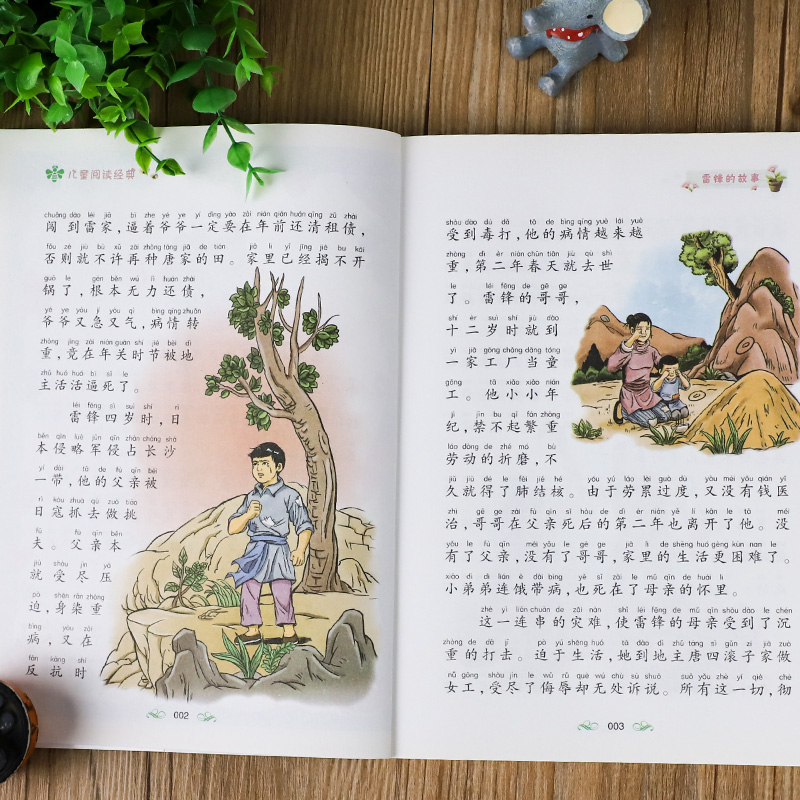 儿童阅读经典
chuǎng dào léi jiā bī zhe yé ye yí dìng yào zài nián qián huán qīng zū zhài
闯到雷家,逼着爷爷一定要在年前还清租债,
fǒu zé jiù bù xǔ zài zhòng táng jiā de tián jiā li yǐ jīng jiē bu kāi
否则就不许再种唐家的田。家里已经揭不开
guō le gēn běn wú lì huán zhài
锅了,根本无力还债,
yé ye yòu jí yòu qì bìng qíng zhuǎn
爷爷又急又气,病情转
zhòng jìng zài nián guān shí jié bèi dì
重,竟在年关时节被地
zhǔ huó huó bī sǐ le
主活活逼死了。
léi fēng sì suì shí rì
雷锋四岁时,日
běn qīn lüè jūn qīn zhàn cháng shā
本侵略军侵占长沙
yí dài tā de fù qīn bèi
一带,他的父亲被
rì kòu zhuā qù zuò tiāo
日寇抓去做挑
fū fù qīn běn
夫。父亲本
jiù shòu jìn yā
就受尽压
pò shēn rǎn zhòng
迫,身染重
bìng yòu zài
病,又在
fǎn kàng shí
反抗时
002
雷锋的故事
shòu dào dú dǎ tā de bìng qíng yuè lái yuè
受到毒打,他的病情越来越
zhòng dì èr nián chūn tiān jiù qù shì
重,第二年春天就去世
le léi fēng de gē ge
了。雷锋的哥哥,
shí èr suì shí jiù dào
十二岁时就到
yì jiā gōng chǎng dāng tóng
一家工厂当童
gōng tā xiǎo xiǎo nián
工。他小小年
jì jīn bu qǐ fán zhòng
纪,禁不起繁重
láo dòng de zhé mó bù
劳动的折磨,不
jiǔ jiù dé le fèi jié hé yóu yú láo lèi guò dù yòu méi yǒu qián yī
久就得了肺结核。由于劳累过度,又没有钱医
zhì gē ge zài fù qīn sǐ hòu de dì èr nián yě lí kāi le tā méi
治,哥哥在父亲死后的第二年也离开了他。没
yǒu le fù qīn méi yǒu le gē ge jiā li de shēng huó gèng kùn nan le
有了父亲,没有了哥哥,家里的生活更困难了。
xiǎo dì di lián è dài bìng yě sǐ zài le mǔ qīn de huái li
小弟弟连饿带病,也死在了母亲的怀里。
zhè yì lián chuàn de zāi nàn shǐ léi fēng de mǔ qīn shòu dào le chén
这一连串的灾难,使雷锋的母亲受到了沉
zhòng de dǎ jī pò yú shēng huó tā dào dì zhǔ táng sì gǔn zi jiā zuò
重的打击。迫于生活,她到地主唐四滚子家做
nǚ gōng shòu jìn le wǔ rǔ què wú chù sù shuō suǒ yǒu zhè yí qiè chè
女工,受尽了侮辱却无处诉说。所有这一切,彻
003